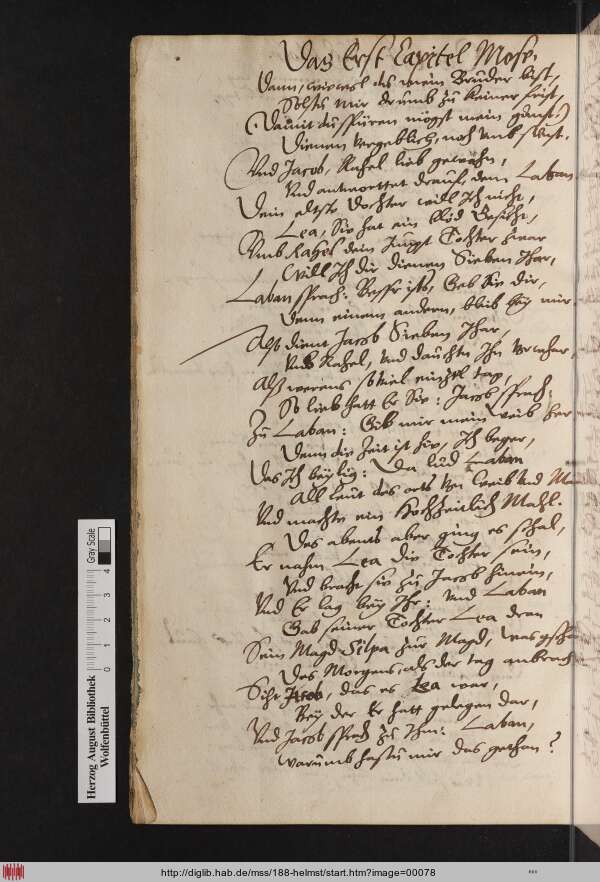 Das Erst Capitel Mose.
Dann, wiewol du mein Bruder bist,
Soltu mir drumb zu keiner frist,
(Damit du spüren mögst mein gunst)
Dienen vergeblich, noch umb sunst.
Und Jacob, Rahel lieb gewahn,
Und antwortet drauf, dem Laban
Dein eltste Dochter will Ich nicht,
Lea, Sie hat ein Blöd Gesicht,
Umb Rahel dein Jüngst Tochter zwar
Will Ich dir dienen Sieben Jhar,
Laban sprach: Besser ists, Geb Sie dir,
Denn einem andern, bleib bey mir
Also dient Jacob Sieben Jhar,
Umb Rahel, und dauchten Ihn
Als werens soviel eintzel tag,
So lieb hatt Er Sie: Jacob sprach:
Zu Laban: Gib mir mein weib her
Denn die Zeit ist hie, Ich beger,
Das Ich beylig: Da lud Laban
All Leut des orts von Weib und
Und machte ein Hochzeitlich Mahl.
Des abents aber ging es schal,
Er nahm Lea die Tochter sein,
Und bracht sie zu Jacob hinein,
Und Er lag bey Ihr: und Laban
Gab seiner Tochter Lea dran
Sein Magd Silpa zur Magd,
Des Morgens, als der tag anbrach
Sihe Jacob, das es Lea war,
Bey der Er hatt gelegen dar,
Und Jacob sprach zu Ihm: Laban,
Warumb hastu mir das gethan?
Herzog August Bibliothek
Wolfenbüttel
0 1 2 3 4
Gray Scale
http://diglib.hab.de/mss/188-helmst/start.htm?image=00078